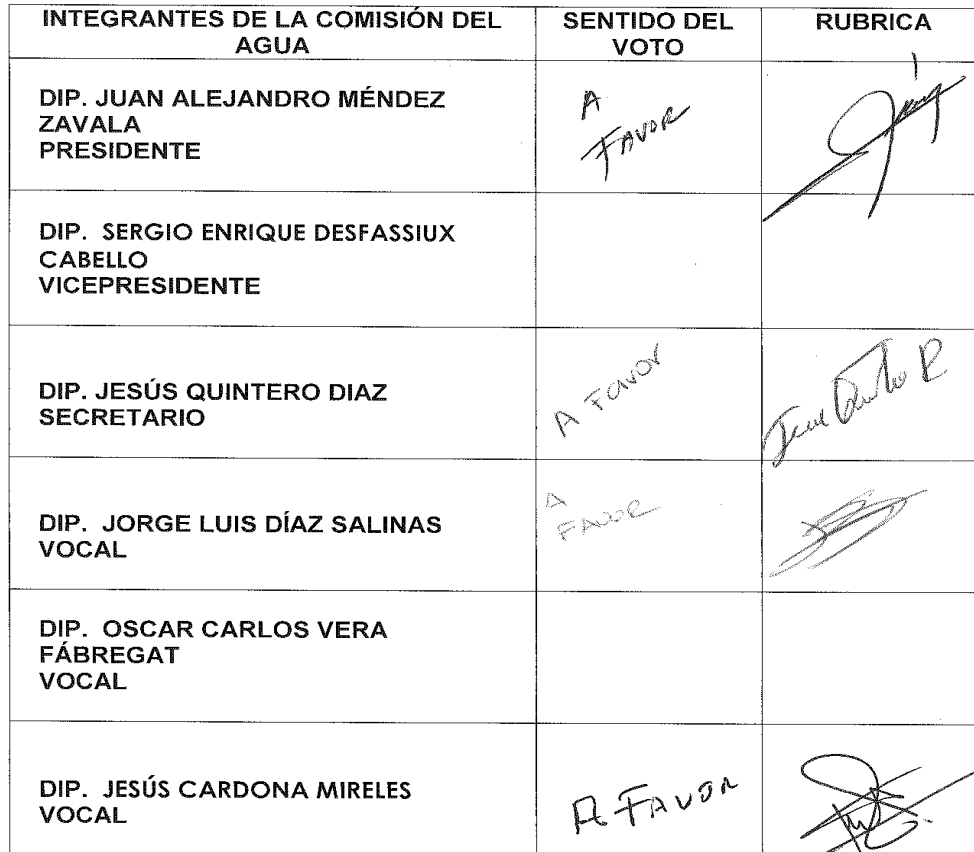 INTEGRANTES DE LA COMISIÓN DEL
AGUA
SENTIDO DEL
VOTO
RUBRICA
DIP. JUAN ALEJANDRO MÉNDEZ
ZAVALA
PRESIDENTE
A
FAVOR
DIP. SERGIO ENRIQUE DESFASSIUX
CABELLO
VICEPRESIDENTE
DIP. JESÚS QUINTERO DIAZ
SECRETARIO
A FAVOR
DIP. JORGE LUIS DÍAZ SALINAS
VOCAL
A
FAVOR
DIP. OSCAR CARLOS VERA
FÁBREGAT
VOCAL
DIP. JESÚS CARDONA MIRELES
VOCAL
A FAVOR